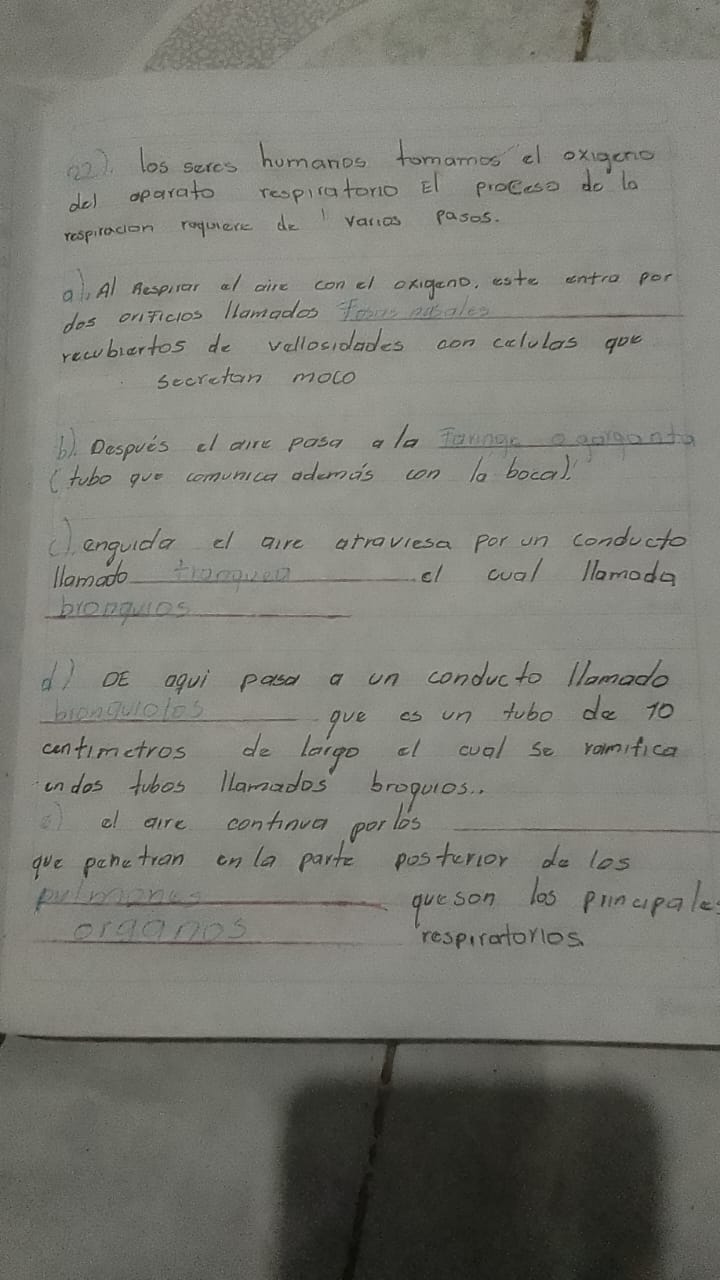 22). los seres humanos tomamos el oxigeno
del aparato respiratorio El proceso de la
respiracion requiere de varios pasos.
a). Al Respirar el aire con el oxigeno, este entra por
dos orificios llamados fosas nasales
recubiertos de vellosidades con celulas que
secretan moco
b). Después el aire pasa a la Faringe o garganta
(tubo que comunica además con la boca).
c). enguida el aire atraviesa por un conducto
llamado tranquea el cual llamada
bronquios
d) DE aqui pasa a un conducto llamado
bronquiolos que es un tubo de 10
centimetros de largo el cual se ramifica
en dos tubos llamados broquios..
e) el aire continua por los
que penetran en la parte posterior de los
pulmones que son los principales
organos respiratorios.